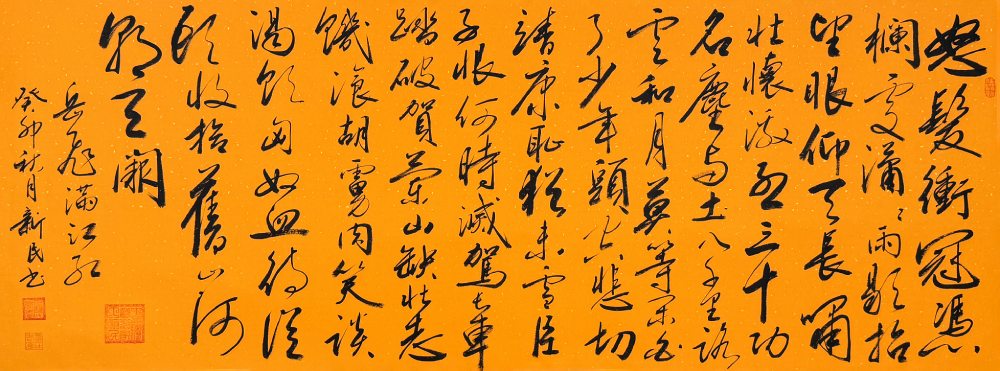 怒髮衝冠馮
欄處瀟〻雨歇抬
望眼仰天長嘯
壯懷激烈三十功
名塵与土八千里路
雲和月莫等閑白
了少年頭空悲切
靖康恥猶未雪臣
子恨何時滅駕長車
踏破賀蘭山缺壯志
饑湌胡虜肉笑談
渴飲匈奴血待從
頭收拾舊山河
朝天闕
岳飛滿江紅
癸卯秋月新民书